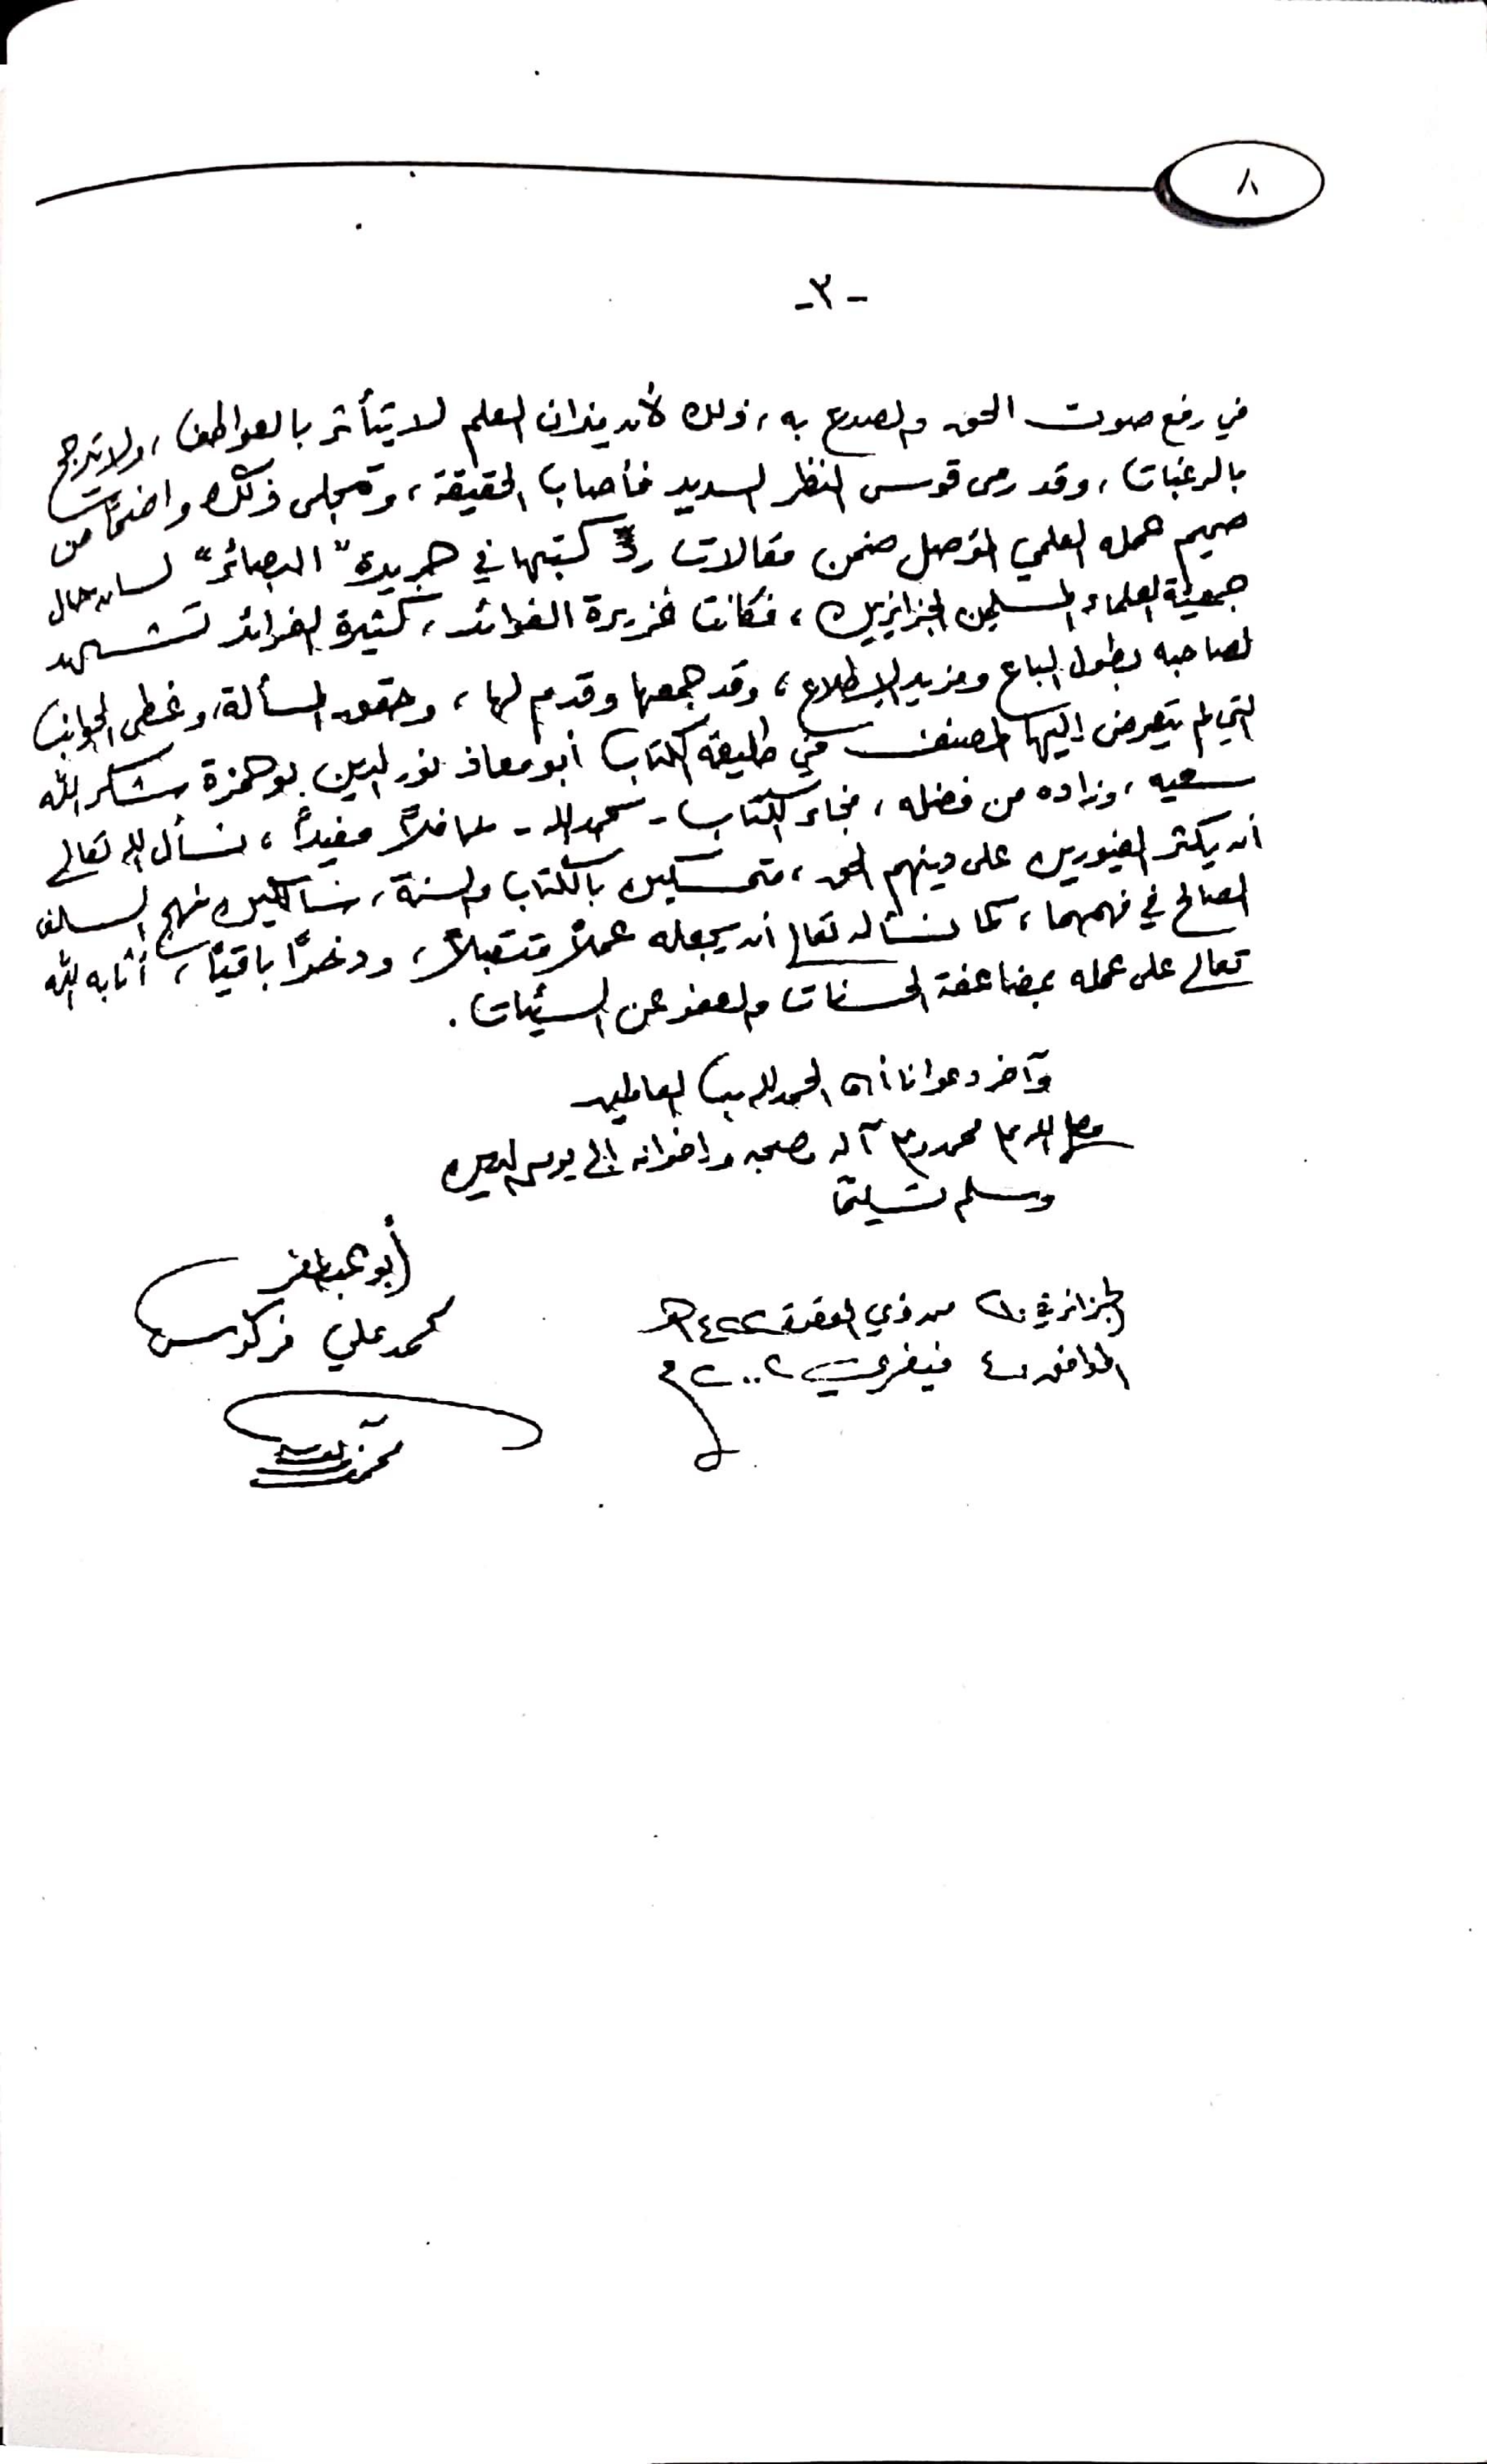 ٨
-٣-
في رفع صوت الحق والصدع به، وذلك لأن ميزان العلم لا يتأثر بالعواطف، ولا يترجح
بالرغبات، وقد رمى قوس النظر السديد فأصاب الحقيقة، وتجلى ذلك واضحًا من
صميم عمله العلمي المؤصل ضمن مقالات كتبها في جريدة "البصائر" لسان حال
جمعية العلماء المسلمين الجزائريين، فكانت غزيرة الفوائد، كثيرة الفرائد تشهد
لصاحبه بطول الباع ومزيد الاطلاع، وقد جمعها وقدم لها، وحقق المسألة، وغطى الجوانب
التي لم يتعرض إليها المصنف في طليعة الكتاب أبو معاذ نور الدين بوحمزة شكر الله
سعيه، وزاده من فضله، فجاء الكتاب - بحمد الله - حافلاً مفيداً، نسأل الله تعالى
أن يكثر الغيورين على دينهم الحق، متمسكين بالكتاب والسنة، سالكين منهج السلف
الصالح في فهمهما، كما نسأله تعالى أن يجعله عملاً متقبلاً، وذخرًا باقيًا، أثابه الله
تعالى على عمله بمضاعفة الحسنات والعفو عن السيئات.
وآخر دعوانا أن الحمد لله رب العالمين
وصلى الله على محمد وعلى آله وصحبه وإخوانه إلى يوم الدين
وسلم تسليمًا
الجزائر في ٢١ من ذي القعدة ١٤٢٢هـ
الموافق لـ ٤ فيفري ٢٠٠٢م
أبو عبد المعز
محمد علي فركوس